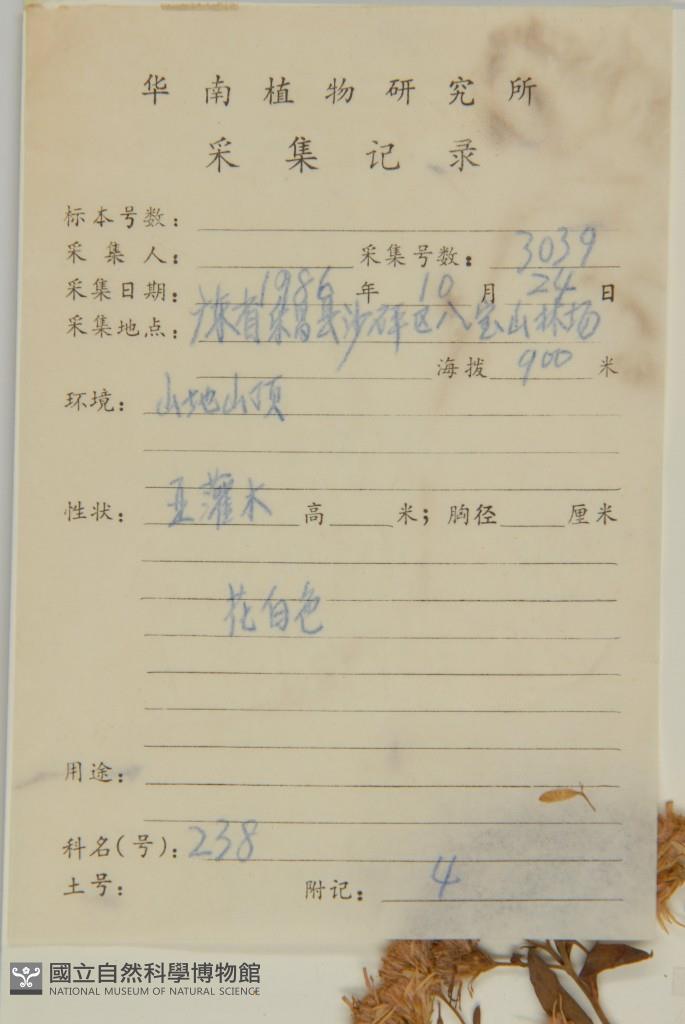 华南植物研究所
采集记录
标本号数：
采集人： 采集号数：3039
采集日期：1986年10月24日
采集地点：广东省乐昌县沙坪区八宝山林场
海拨 900 米
环境：山地山顶
性状：亚灌木 高 米；胸径 厘米
花白色
用途：
科名(号)：238
土号： 附记：4
國立自然科學博物館
NATIONAL MUSEUM OF NATURAL SCIENCE